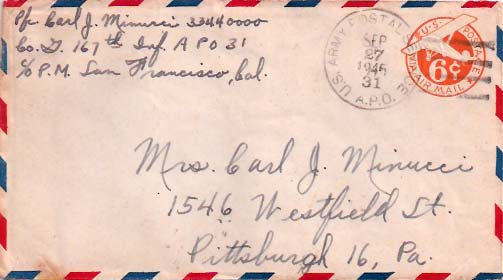 Pfc Carl J. Minucci 33440000
Co. I. 167th Inf. APO 31
c/o P.M. San Francisco, Cal.
U.S. ARMY POSTAL SERVICE
SEP
27
1945
31
A.P.O.
U.S. POSTAGE
6¢
VIA AIR MAIL
Mrs. Carl J. Minucci
1546 Westfield St.
Pittsburgh 16, Pa.